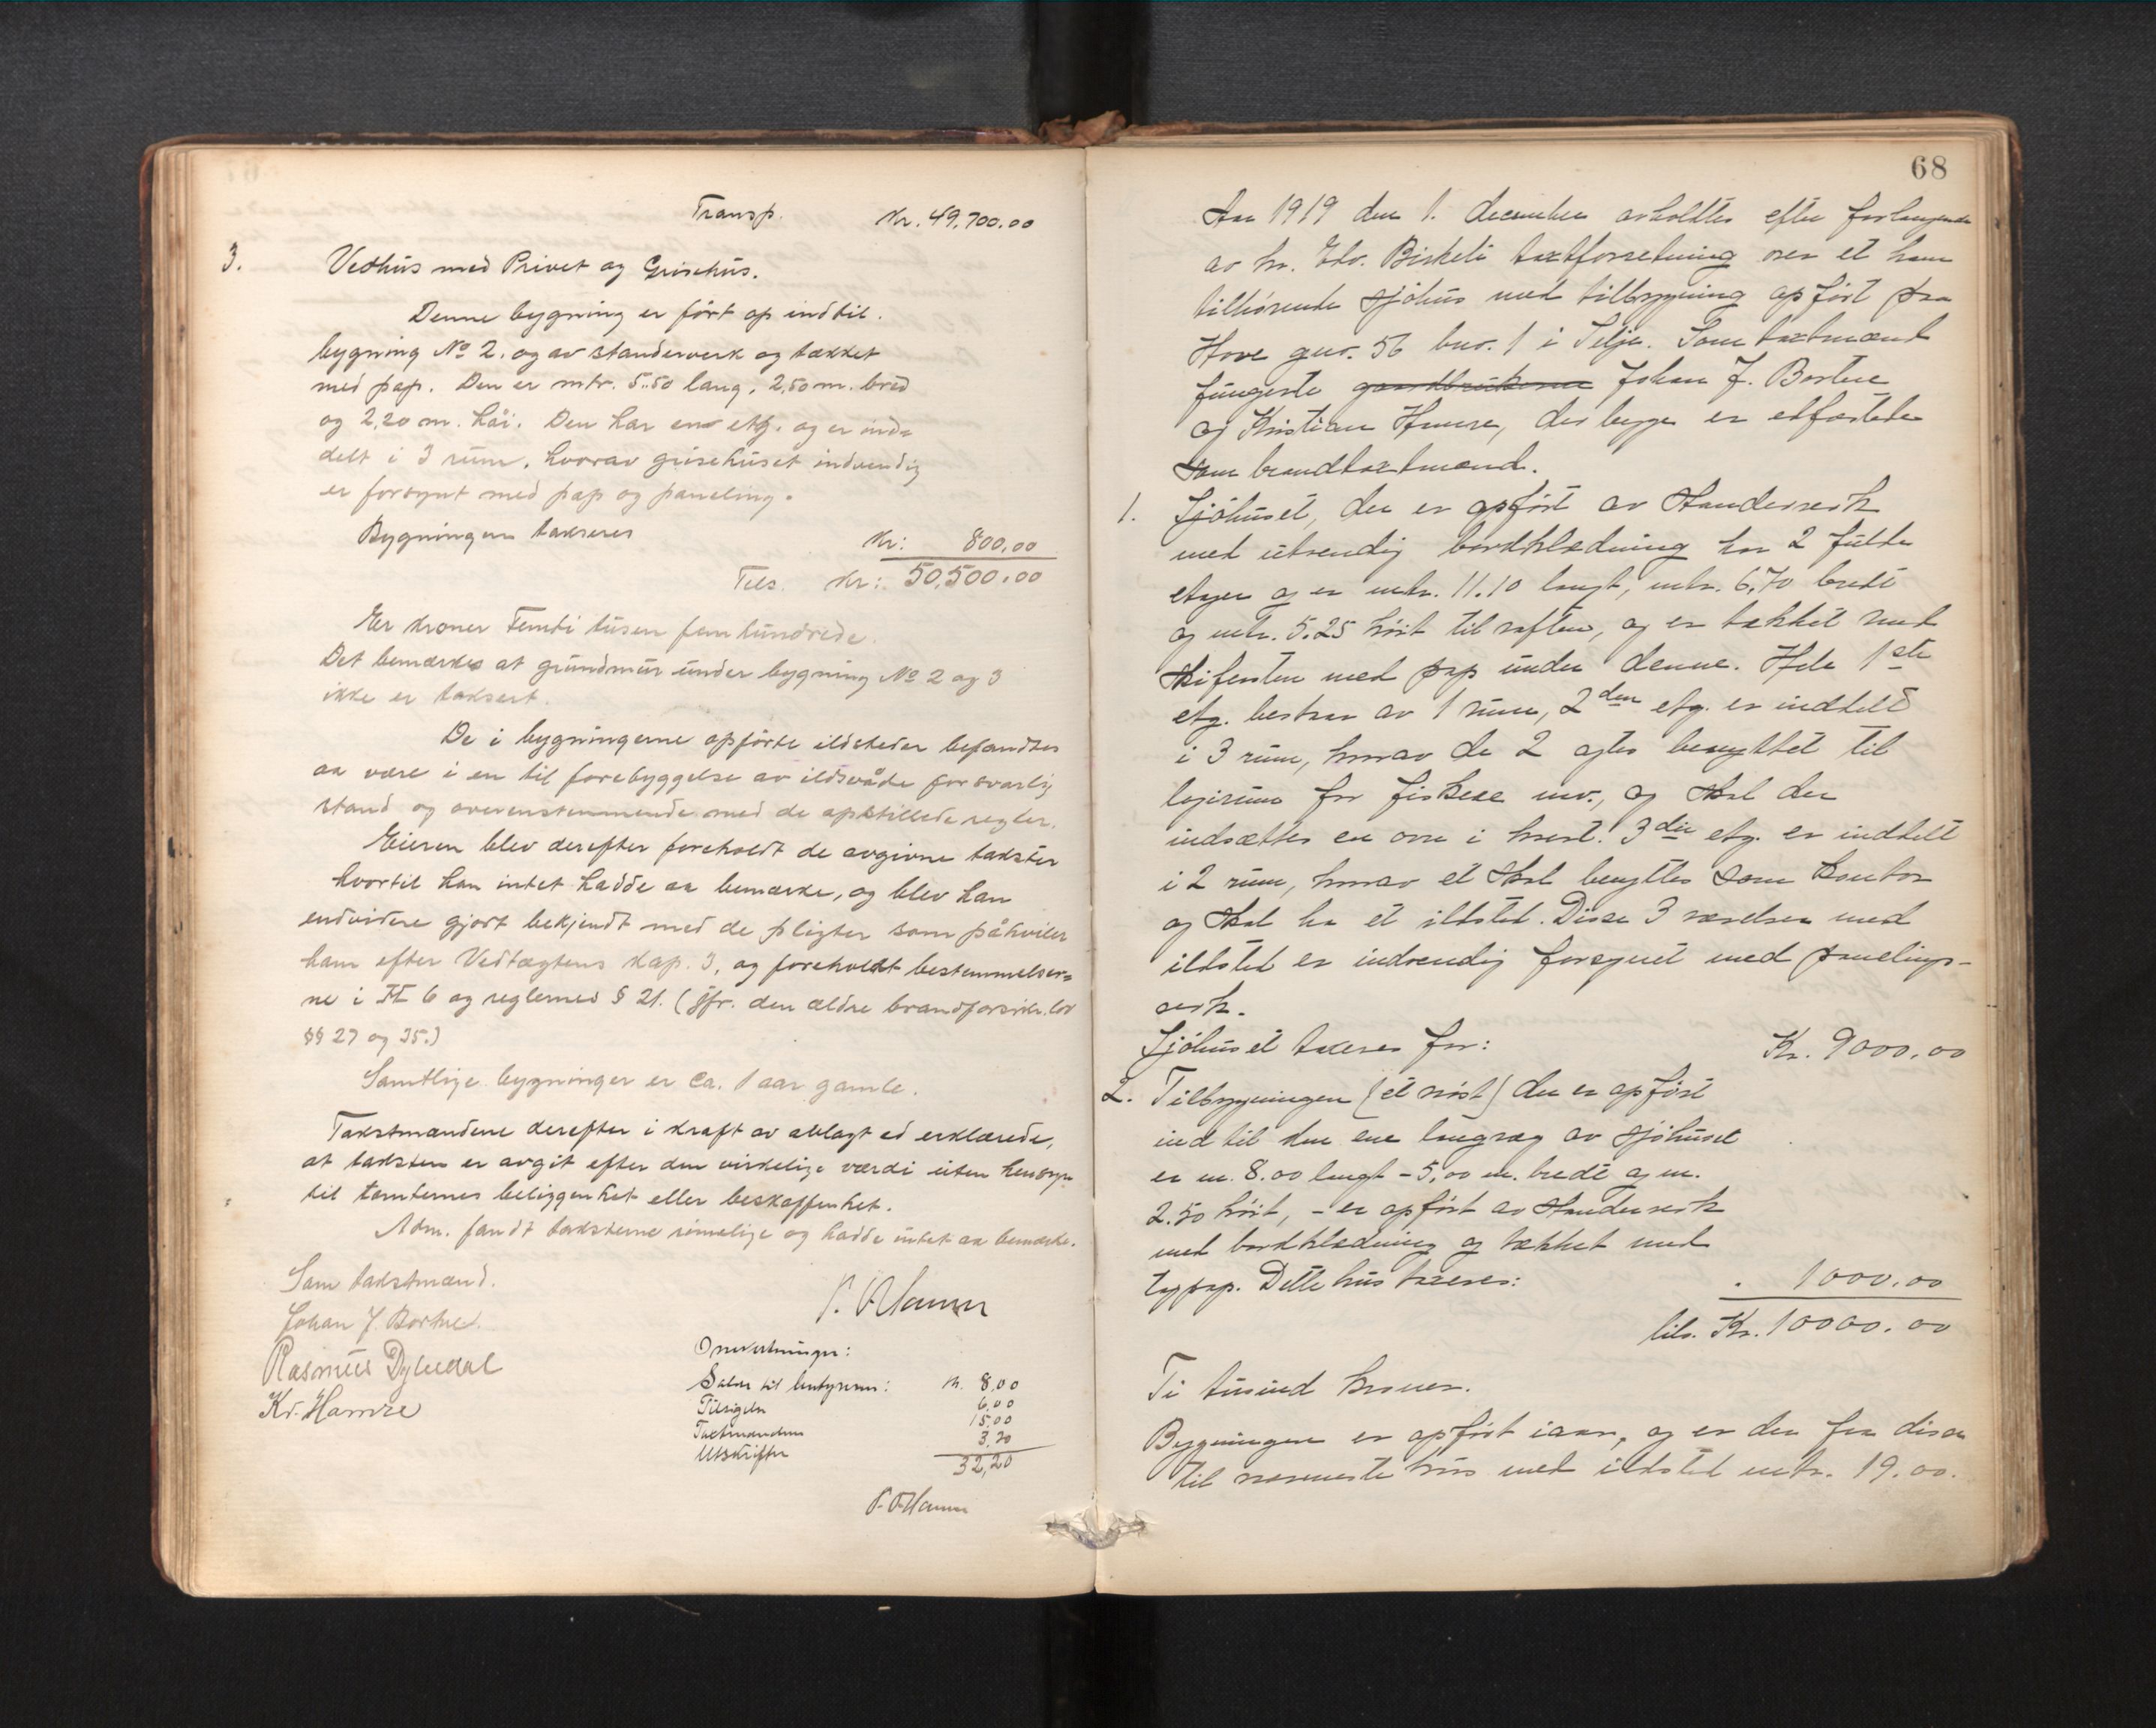 Transp. Kr. 49,700.00
3. Vedhus med Privet og Grisehus.
Denne bygning er ført op indtil.
bygning No 2. og av standerverk og tækket
med pap. Den er mtr. 5.50 lang, 2,50 m. bred
og 2,20 m. høi. Den har en etg. og er ind=
delt i 3 rum, hvorav grisehuset indvendig
er forsynt med pap og paneling.
Bygningen takseres Kr: 800,00
Tils. Kr: 50,500.00
Er kroner Femti tusen fem hundrede.
Det bemærkes at grundmur under bygning No 2 og 3
ikke er taksert.
De i bygningerne opførte ildsteder befandtes
aa være i en til forebyggelse av ildsvåde forsvarlig
stand og overensstemmende med de opstillede regler.
Eieren blev derefter foreholdt de avgivne takster
hvortil han intet hadde aa bemærke, og blev han
endvidere gjort bekjendt med de pligter som påhviler
ham efter Vedtægtens kap. 3, og foreholdt bestemmelser=
ne i 6 og reglernes § 21. (jfr. den ældre brandforsikr. lov
§§ 27 og 35.)
Samtlige bygninger er ca. 1 aar gamle.
Takstmændene derefter i kraft av avlagt ed erklærede,
at taksten er avgit efter den virkelige værdi uten hensyn
til tomternes beliggenhet eller beskaffenhet.
Adm. fandt taksterne rimelige og hadde intet aa bemærke.
Som takstmænd.
Johan J. Bortne.
Rasmus
Kr. Hamre
Omkostninger:
Salær til bestyreren: kr. 8,00
Tilsigeln 6,00
Taxtmændene 15,00
Utskrifter 3,20
32,20
68
Aar 1919 den 1. december avholdtes efter forlangende
av hr. Edv. Birkeli taxtforretning over et ham
tilhørende sjøhus med tilbygning opført paa
Hove gnr. 56 bnr. 1 i Selje. Som taxtmænd
fungerte gaardbrukerne Johan J. Bortne
og Kristian Hamre, der begge er edfæstede
som brandtaxtmænd.
1. Sjøhuset, der er opført av standerverk
med utvendig bordklædning har 2 fulde
etager og er mtr. 11.10 langt, mtr. 6,70 bredt
og mtr. 5.25 høit til raften, og er tækket med
skifersten med pap under denne. Hele 1ste
etg. bestaar av 1 rum, 2den etg. er inddelt
i 3 rum, hvorav de 2 agtes benyttet til
logirum for fiskere m.v., og skal der
indsættes en ovn i hvert. 3die etg. er inddelt
i 2 rum, hvorav et skal benyttes som kontor
og skal ha et ildsted. Disse 3 værelser med
ildsted er indvendig forsynet med panelings-
verk.
Sjøhuset taxeres for: Kr. 9000,00
2. Tilbygningen (et nøst) der er opført
ind til den ene langvæg av sjøhuset
er m. 8.00 langt - 5,00 m. bredt og m.
2.50 høit, - er opført av standerverk
med bordklædning og tækket med
tagpap. Dette hus taxeres: " 1000.00
tils. Kr. 10000.00
Ti tusind kroner.
Bygningen er opført iaar, og er der fra disse
til nærmeste hus med ildsted mtr. 19.00.